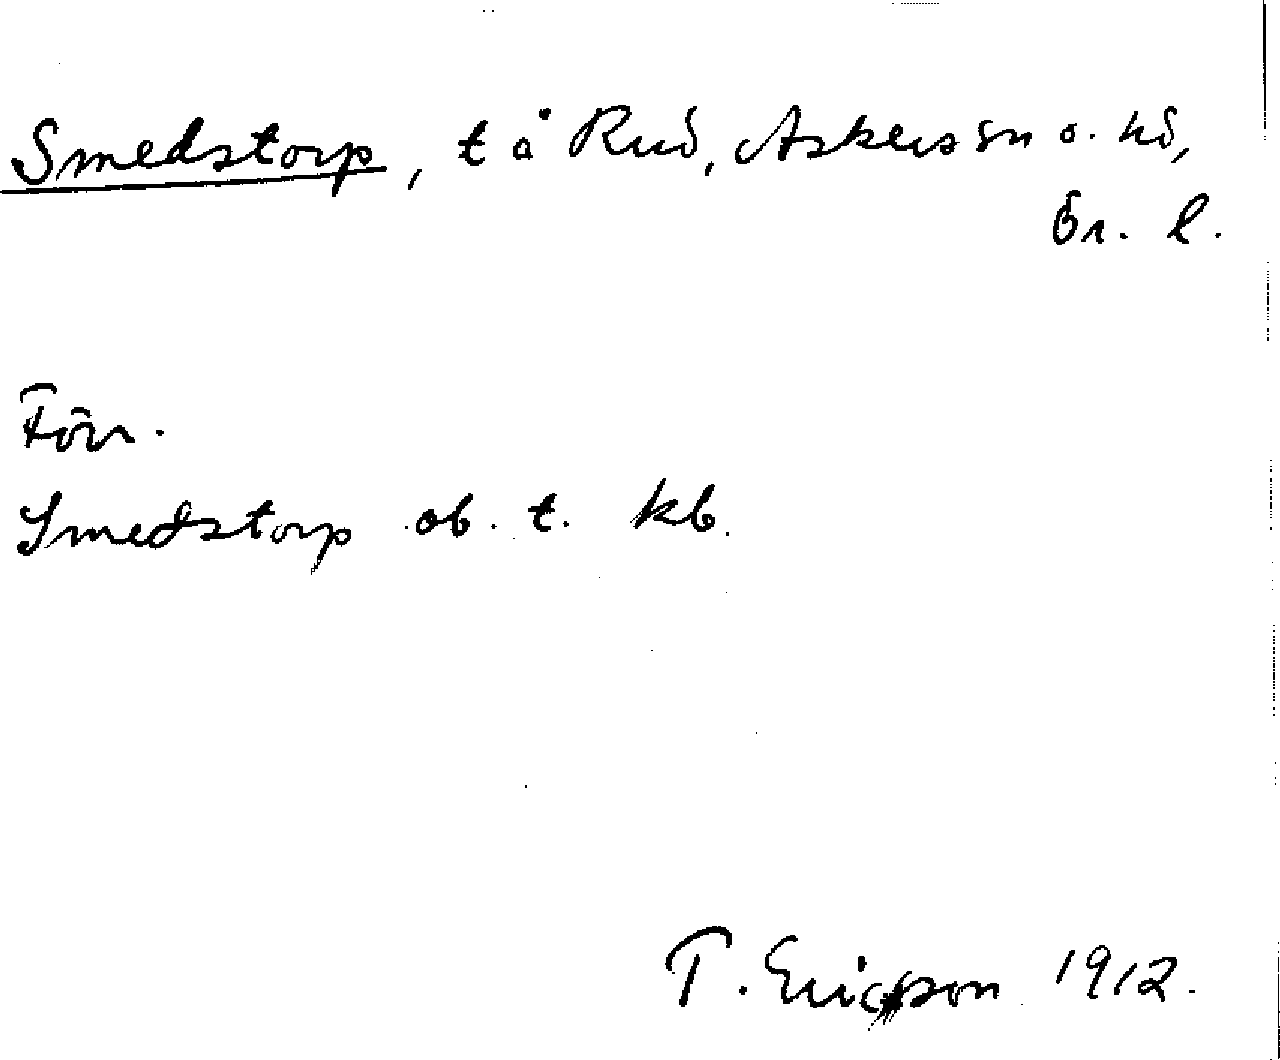 Smedstorp, t å Rud, Askers sn o. hd,
Ör. l.
Förr.
Smedstorp ob. t. kb.
T. Ericsson 1912.